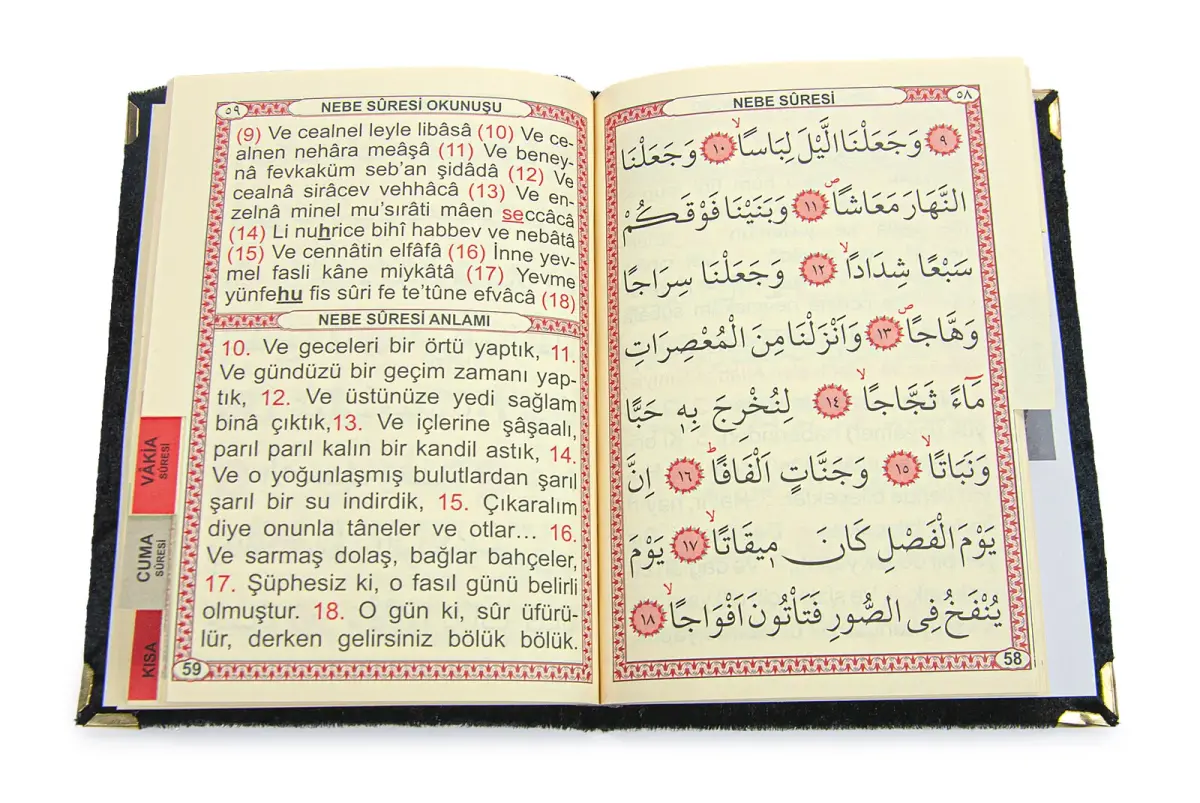 ٥٩
NEBE SÛRESİ OKUNUŞU
(9) Ve cealnel leyle libâsâ (10) Ve ce-
alnen nehâra meâşâ (11) Ve beney-
nâ fevkaküm seb'an şidâdâ (12) Ve
cealnâ sirâcev vehhâcâ (13) Ve en-
zelnâ minel mu'sırâti mâen seccâcâ
(14) Li nuhrice bihî habbev ve nebâtâ
(15) Ve cennâtin elfâfâ (16) İnne yev-
mel fasli kâne miykâtâ (17) Yevme
yünfehu fis sûri fe te'tûne efvâcâ (18)
NEBE SÛRESİ ANLAMI
10. Ve geceleri bir örtü yaptık, 11.
Ve gündüzü bir geçim zamanı yap-
tık, 12. Ve üstünüze yedi sağlam
binâ çıktık,13. Ve içlerine şâşaalı,
parıl parıl kalın bir kandil astık, 14.
Ve o yoğunlaşmış bulutlardan şarıl
şarıl bir su indirdik, 15. Çıkaralım
diye onunla tâneler ve otlar... 16.
Ve sarmaş dolaş, bağlar bahçeler,
17. Şüphesiz ki, o fasıl günü belirli
olmuştur. 18. O gün ki, sûr üfürü-
lür, derken gelirsiniz bölük bölük.
59
VÂKİA
SÛRESİ
CUMA
SÛRESİ
KISA
NEBE SÛRESİ
٥٨
٩ وَجَعَلْنَا الَّيْلَ لِبَاسًاۙ ١٠ وَجَعَلْنَا
النَّهَارَ مَعَاشًاۖ ١١ وَبَنَيْنَا فَوْقَكُمْ
سَبْعًا شِدَادًاۙ ١٢ وَجَعَلْنَا سِرَاجًا
وَهَّاجًاۖ ١٣ وَاَنْزَلْنَا مِنَ الْمُعْصِرَاتِ
مَٓاءً ثَجَّاجًاۙ ١٤ لِنُخْرِجَ بِه۪ حَبًّا
وَنَبَاتًاۙ ١٥ وَجَنَّاتٍ اَلْفَافًاۜ ١٦ اِنَّ
يَوْمَ الْفَصْلِ كَانَ م۪يقَاتًاۙ ١٧ يَوْمَ
يُنْفَخُ فِى الصُّورِ فَتَأْتُونَ اَفْوَاجًاۙ ١٨
58